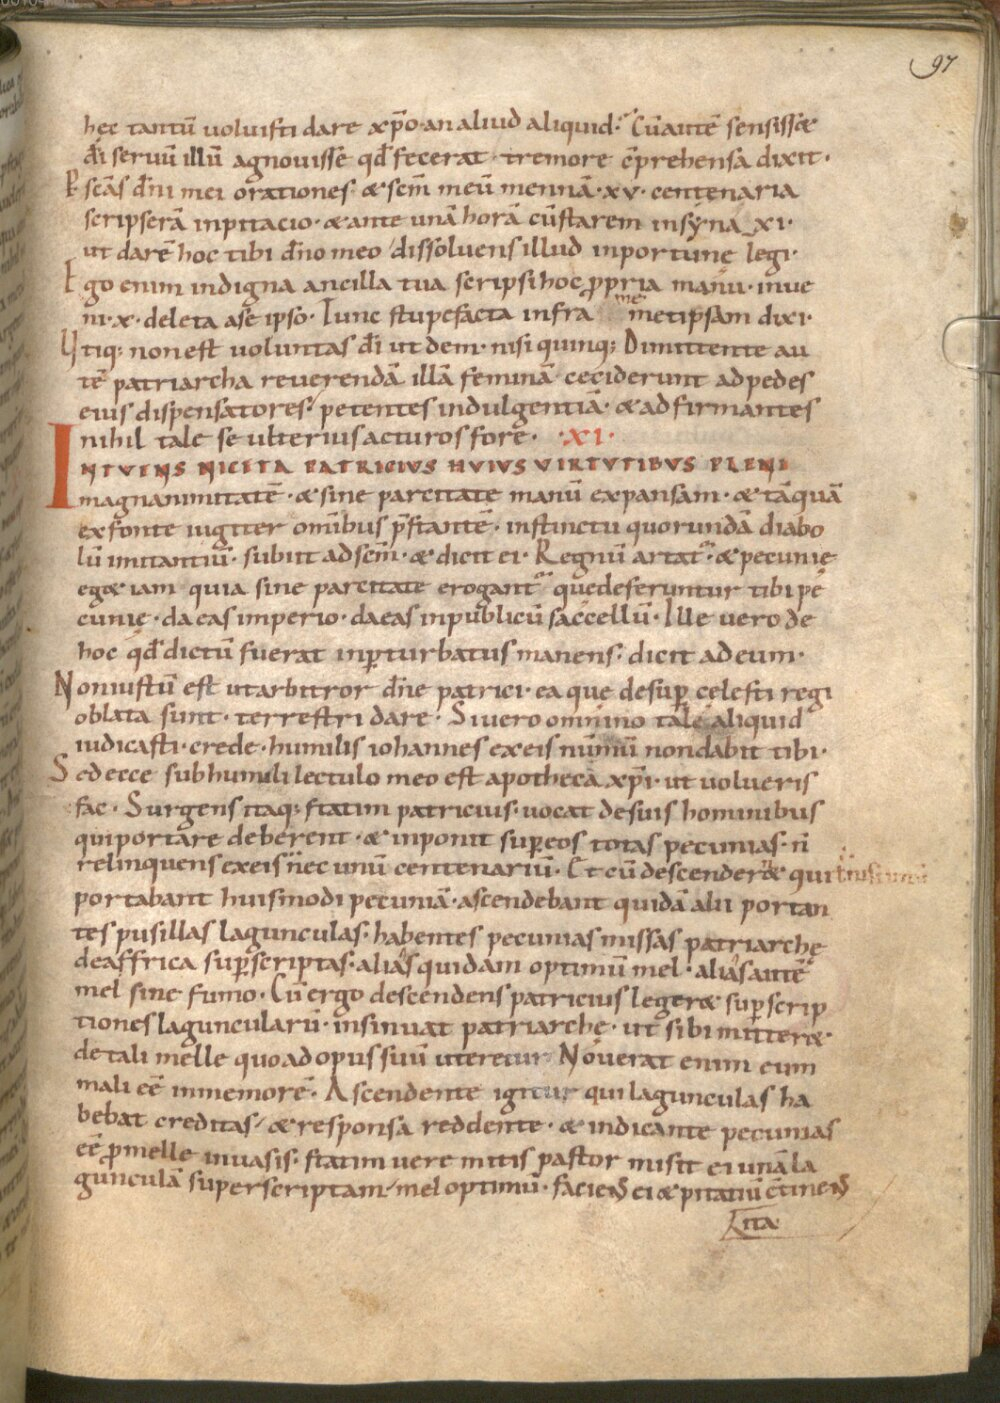 97
hęc tantū voluisti dare xp̄o· an aliud aliquid· Cū autē sensisset
dī servū illū agnovisse qd̄ fecerat· tremore cp̄rehensa dixit·
P scās dn̄i mei orationes· et scm̄ meū mennā· xv· centenaria
scripserā in pitacio· et ante unā horā cū starem in syna xi·
ut darē hoc tibi dn̄o meo dissolvens illud inportune legi·
Ego enim indigna ancilla tua scripsi hoc propria manu· inve
ni· x· deleta a se ipso· Tunc stupefacta infra me metipsam dixi·
Utiq; non est voluntas dī ut dem· nisi quinq; Dimittente au
tē patriarcha reverendā illā feminā· ceciderunt ad pedes
eius dispensatores· petentes indulgentiā· et adfirmantes
nihil tale se ulterius acturos fore· ·XI·
INTVENS NICETA PATRICIVS HVIVS VIRTVTIBVS PLENI
magnanimitatē· et sine parcitate manū expansam· et tāquā
ex fonte iugiter omībus p̄stantē· instinctu quorundā diabo
lū imitantiū· subiit ad scm̄· et dicit ei· Regnū artat͛· et pecunię
eget iam quia sine parcitate erogant͛ quę deferuntur tibi pe
cunię· da eas imperio· da eas in publicū saccellū· Ille vero de
hoc qd̄ dictū fuerat inp̱turbatus manens· dicit ad eum·
Non iustū est ut arbitror dn̄e patrici· ea quę desup̱ celesti regi
oblata sunt· terrestri dare· Si vero omnino tale aliquid
iudicasti· crede· humilis iohannes ex eis nūmū non dabit tibi·
Sed ecce sub humili lectulo meo est apotheca xp̄i· ut volueris
fac· Surgens itaq; statim patricius· vocat de suis hominibus
qui portare deberent· et inponit sup̱ eos totas pecunias· n̄
relinquens ex eis nec unū centenariū· Et cū descenderet qui
portabant huismodi pecuniā· ascendebant quidā alii portan
tes pusillas lagunculas· habentes pecunias missas patriarchę
de affrica sup̱scriptas· alias quidam optimū mel· alias autē
mel sine fumo· Cū ergo descendens patricius legeret sup̱scrip
tiones laguncularū· insinuat patriarchę· ut sibi mitteret·
de tali melle quo ad opus suū uteretur Noverat enim eum
mali eē inmemorē· Ascendente igitur qui lagunculas ha
bebat creditas· et responsa reddente· et indicante pecunias
eē pro melle in vasis· statim vere mitis pastor misit ei unā la
gunculā superscriptam mel optimū· faciens ei et pitatiū c̄tinens
ita